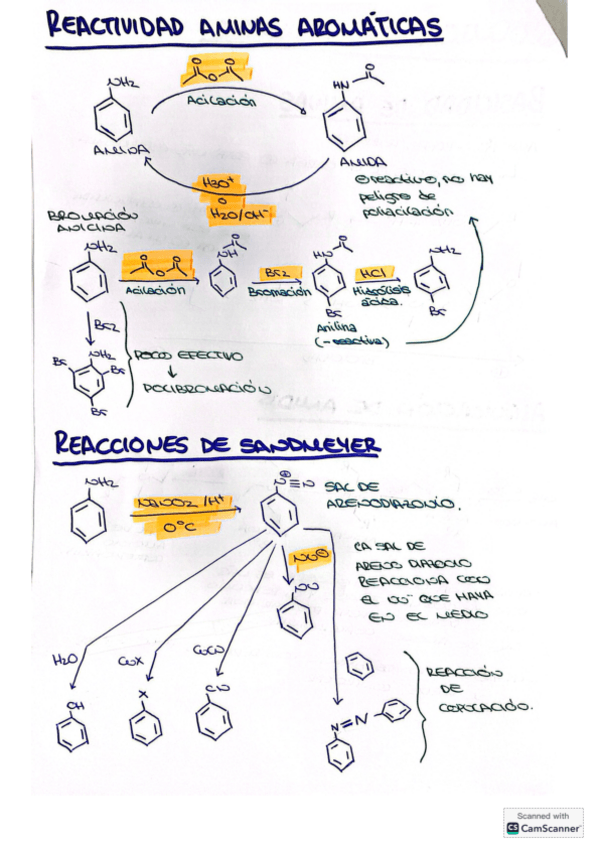 REACTIVIDAD AMINAS AROMÁTICAS
NH2
O
O
O
Acilación
AMINA
HN
O
AMIDA
H3O+
o
H2O/OH-
⊖reactivo, no hay
peligro de
poliacilación
BROMACIÓN
ANILINA
NH2
O
O
O
Acilación
O
NH
Br2
Bromación
HN
O
Br
Anilina
(-reactiva)
HCl
Hidrólisis
ácida.
NH2
Br
Br2
NH2
Br
Br
Br
POCO EFECTIVO
↓
POLIBROMACIÓN
REACCIONES DE SANDMEYER
NH2
NaNO2/H+
0°C
⊕
N≡N
SAL DE
ARENODIAZONIO.
Nu⊖
Nu
LA SAL DE
ARENO DIAZOCIO
REACCIONA CON
EL Nu- QUE HAYA
EN EL MEDIO
H2O
CuX
CuCN
OH
X
CN
N=N
REACCIÓN
DE
COPULACIÓN.
Scanned with
CS CamScanner